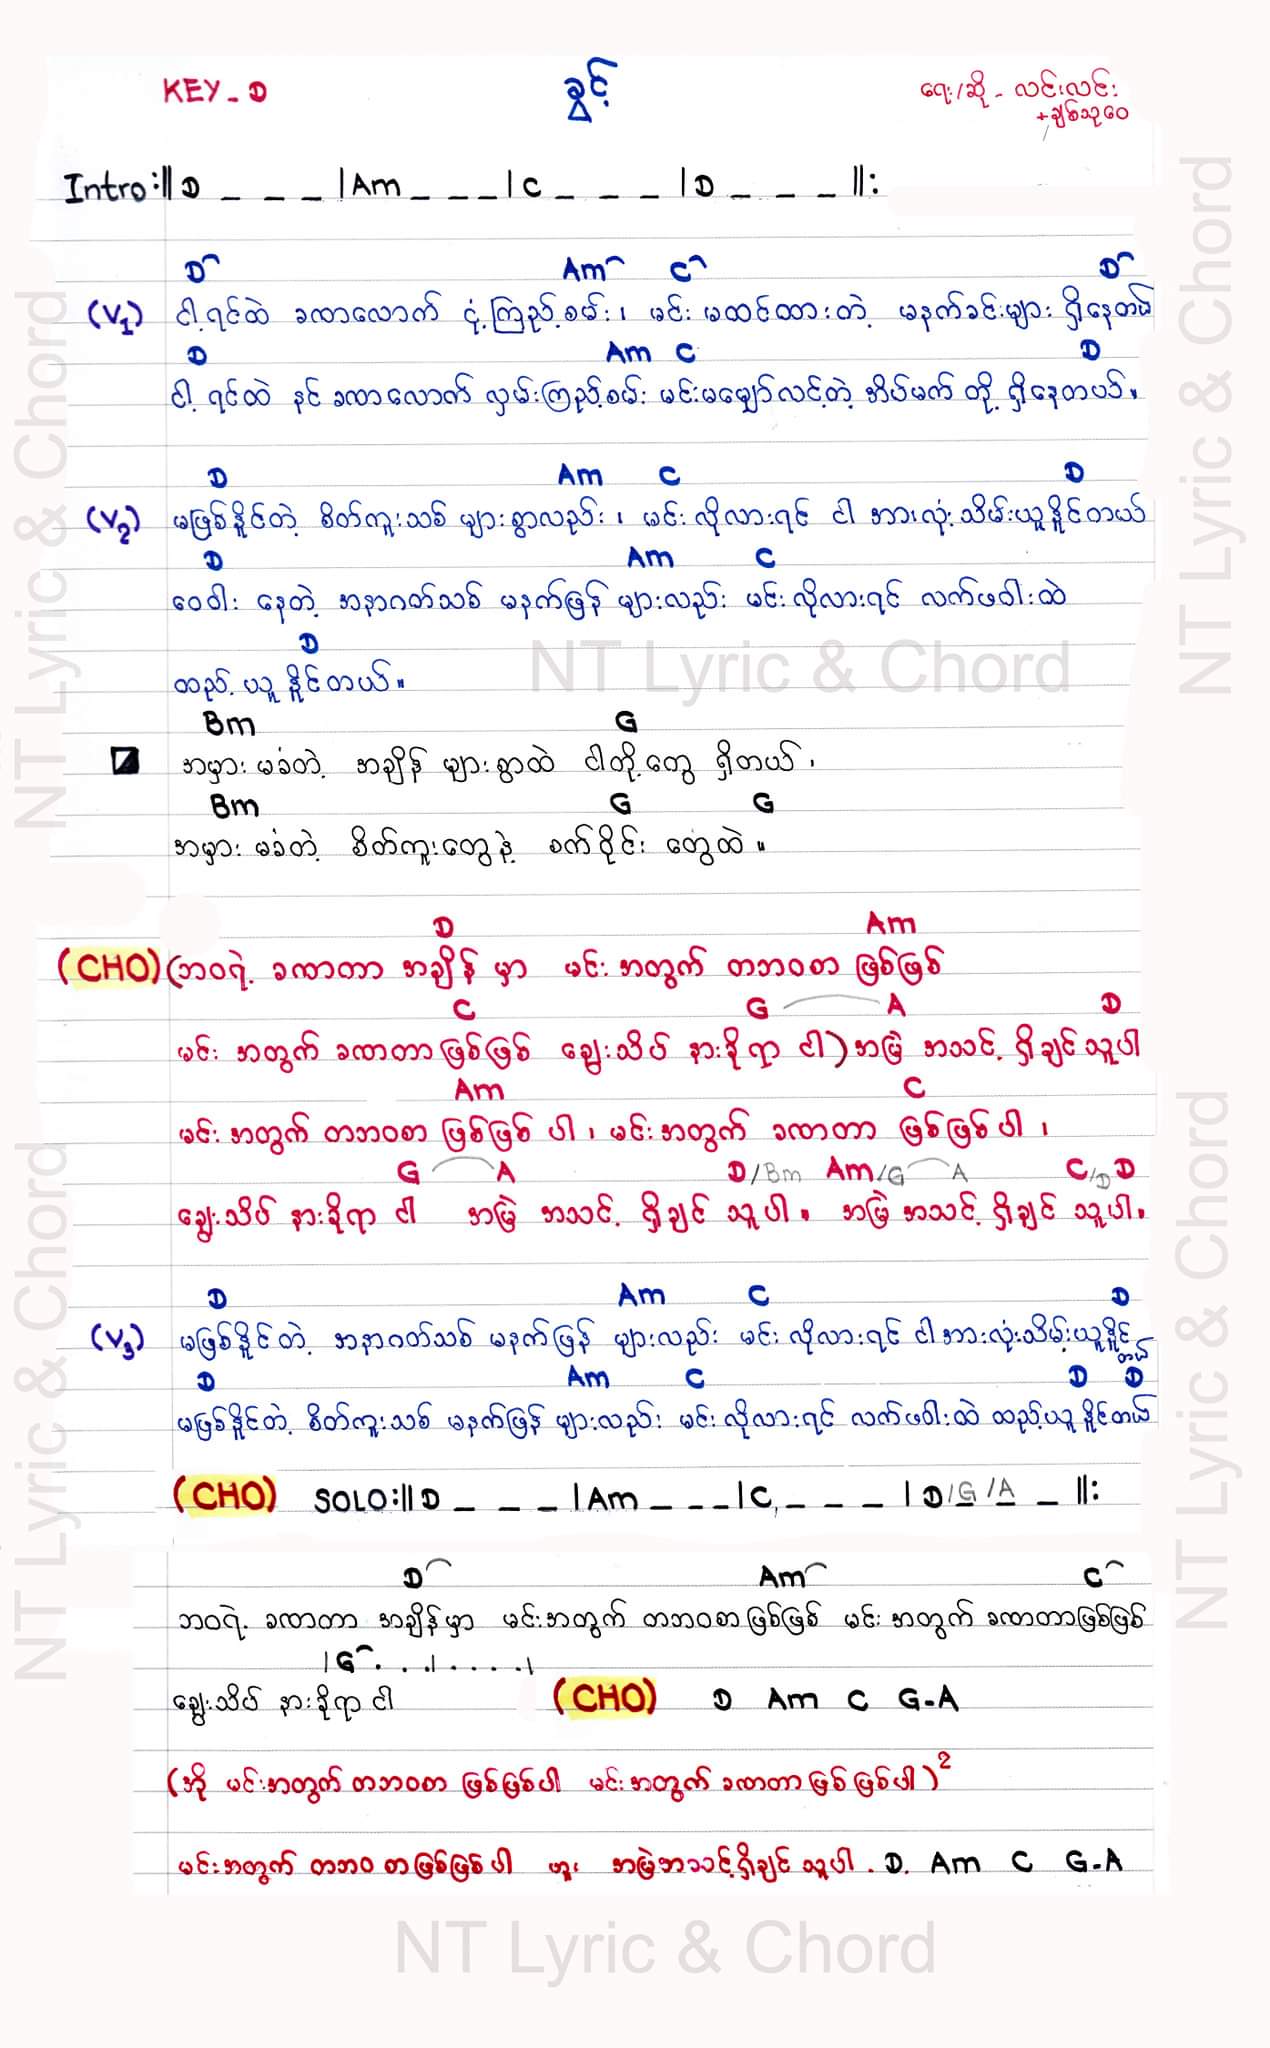 KEY - D
ခွင့်
ရေး/ဆို - လင်းလင်း
+ချစ်သုဝေ
Intro :|| D _ _ _ | Am _ _ _ | C _ _ _ | D _ _ _ ||:
D Am C D
(V1) ငါ့ရင်ထဲ ခဏလောက် ငုံ့ကြည့်စမ်း၊ မင်း မထင်ထားတဲ့ မနက်ခင်းများ ရှိနေတယ်
D Am C D
ငါ့ ရင်ထဲ နင် ခဏလောက် လှမ်းကြည့်စမ်း မင်းမမျှော်လင့်တဲ့ အိပ်မက် တို့ ရှိနေတယ်။
D Am C D
(V2) မဖြစ်နိုင်တဲ့ စိတ်ကူးသစ် များစွာလည်း၊ မင်း လိုလားရင် ငါ အားလုံး သိမ်းယူနိုင်တယ်
D Am C
ဝေဝါး နေတဲ့ အနာဂတ်သစ် မနက်ဖြန် များလည်း မင်းလိုလားရင် လက်ဖဝါးထဲ
D
NT Lyric & Chord
ထည့် ယူ နိုင်တယ်။
Bm G
အမှား မခံတဲ့ အချိန် များစွာထဲ ငါတို့တွေ ရှိတယ်၊
Bm G G
အမှား မခံတဲ့ စိတ်ကူးတွေနဲ့ စက်ဝိုင်း တွေထဲ။
D Am
(CHO) (ဘဝရဲ့ ခဏတာ အချိန် မှာ မင်း အတွက် တဘဝစာ ဖြစ်ဖြစ်
C G A D
မင်း အတွက် ခဏတာဖြစ်ဖြစ် ချွေးသိပ် နားခိုရာ ငါ) အမြဲ အသင့် ရှိချင် သူပါ
Am C
မင်း အတွက် တဘဝစာ ဖြစ်ဖြစ် ပါ၊ မင်း အတွက် ခဏတာ ဖြစ်ဖြစ်ပါ၊
G A D/Bm Am/G A C/D D
ချွေးသိပ် နားခိုရာ ငါ အမြဲ အသင့် ရှိချင် သူပါ။ အမြဲ အသင့် ရှိချင် သူပါ။
D Am C D
(V3) မဖြစ်နိုင်တဲ့ အနာဂတ်သစ် မနက်ဖြန် များလည်း မင်း လိုလားရင် ငါအားလုံးသိမ်းယူနိုင်
တယ်
D Am C D D
မဖြစ်နိုင်တဲ့ စိတ်ကူးသစ် မနက်ဖြန် များလည်း မင်း လိုလားရင် လက်ဖဝါးထဲ ထည့်ယူ နိုင်တယ်
(CHO) SOLO:|| D _ _ _ | Am _ _ _ | C, _ _ _ | D/G/A _ ||:
D Am C
ဘဝရဲ့ ခဏတာ အချိန်မှာ မင်းအတွက် တဘဝစာဖြစ်ဖြစ် မင်း အတွက် ခဏတာဖြစ်ဖြစ်
|G . . .| . . . .|
ချွေးသိပ် နားခိုရာ ငါ (CHO) D Am C G-A
(အို မင်းအတွက် တဘဝစာ ဖြစ်ဖြစ်ပါ မင်းအတွက် ခဏတာ ဖြစ်ဖြစ်ပါ)²
မင်းအတွက် တဘဝ စာဖြစ်ဖြစ်ပါ ဟူး အမြဲအသင့်ရှိချင် သူပါ. D. Am C G-A
NT Lyric & Chord
NT Lyric & Chord
NT Lyric & Chord
NT Lyric & Chord
NT Lyric & Chord